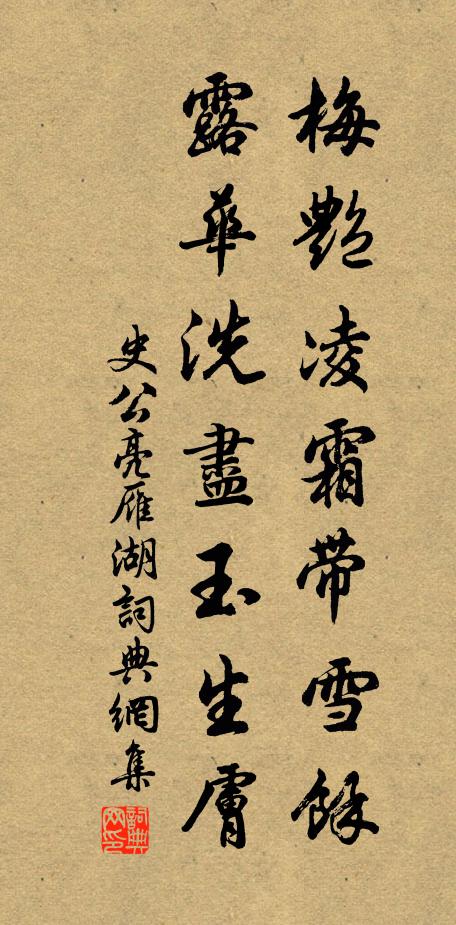 梅艷凌霜带雪餘
露華洗盡玉生膚
史公亮雁湖詞典網集
詞典网印